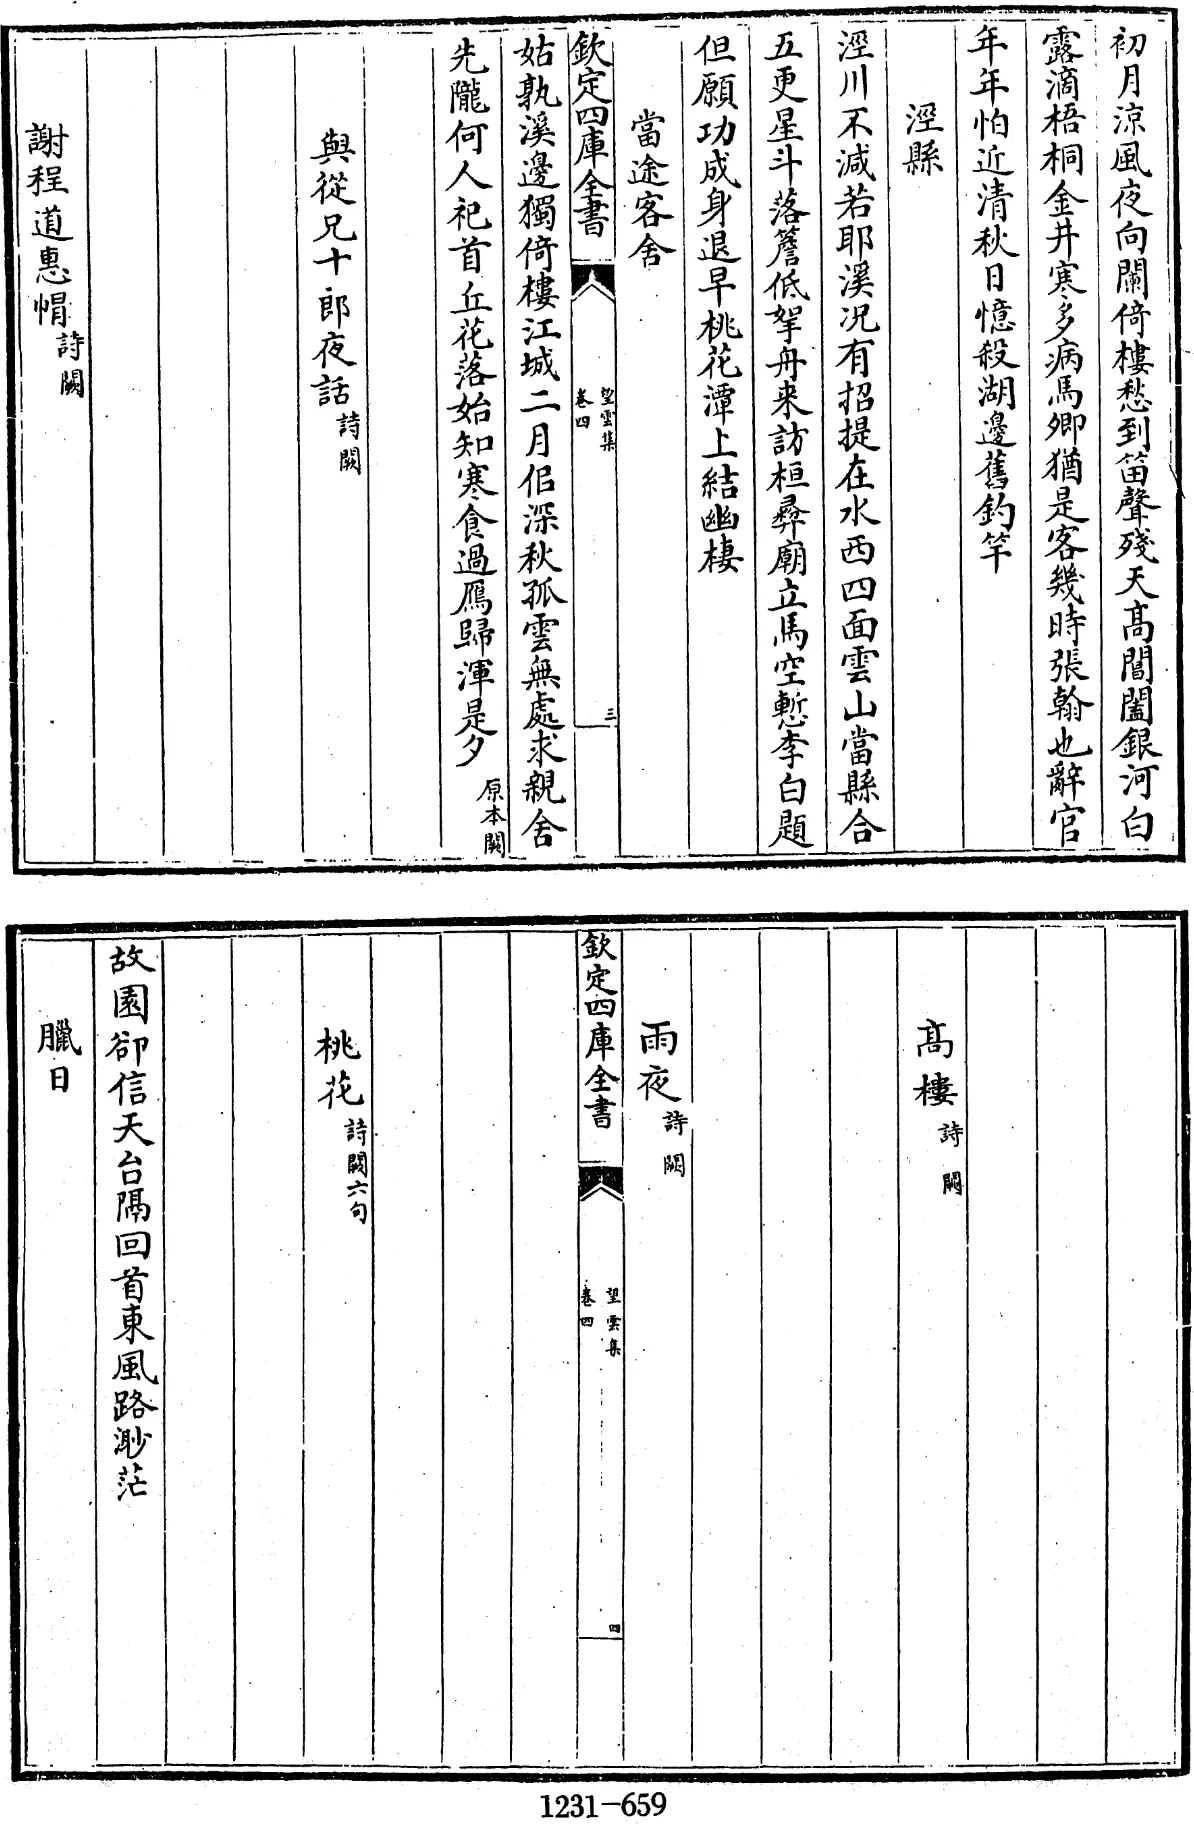 初月涼風夜向闌倚樓愁到笛聲殘天高閶闔銀河白
露滴梧桐金井寒多病馬卿猶是客幾時張翰也辭官
年年怕近清秋日憶殺湖邊舊釣竿
涇縣
涇川不減若耶溪况有招提在水西四面雲山當縣合
五更星斗落簷低拏舟来訪桓彞廟立馬空慙李白題
但願功成身退早桃花潭上結幽棲
當途客舍
欽定四庫全書
望雲集
卷四
三
姑孰溪邊獨倚樓江城二月佀深秋孤雲無處求親舍
先隴何人祀首丘花落始知寒食過鴈歸渾是夕
原本闕
與從兄十郎夜話詩闕
謝程道惠帽詩闕
高樓詩闕
雨夜詩闕
欽定四庫全書
望雲集
卷四
四
桃花詩闕六句
故園郤信天台隔回首東風路渺茫
臘日
1231-659